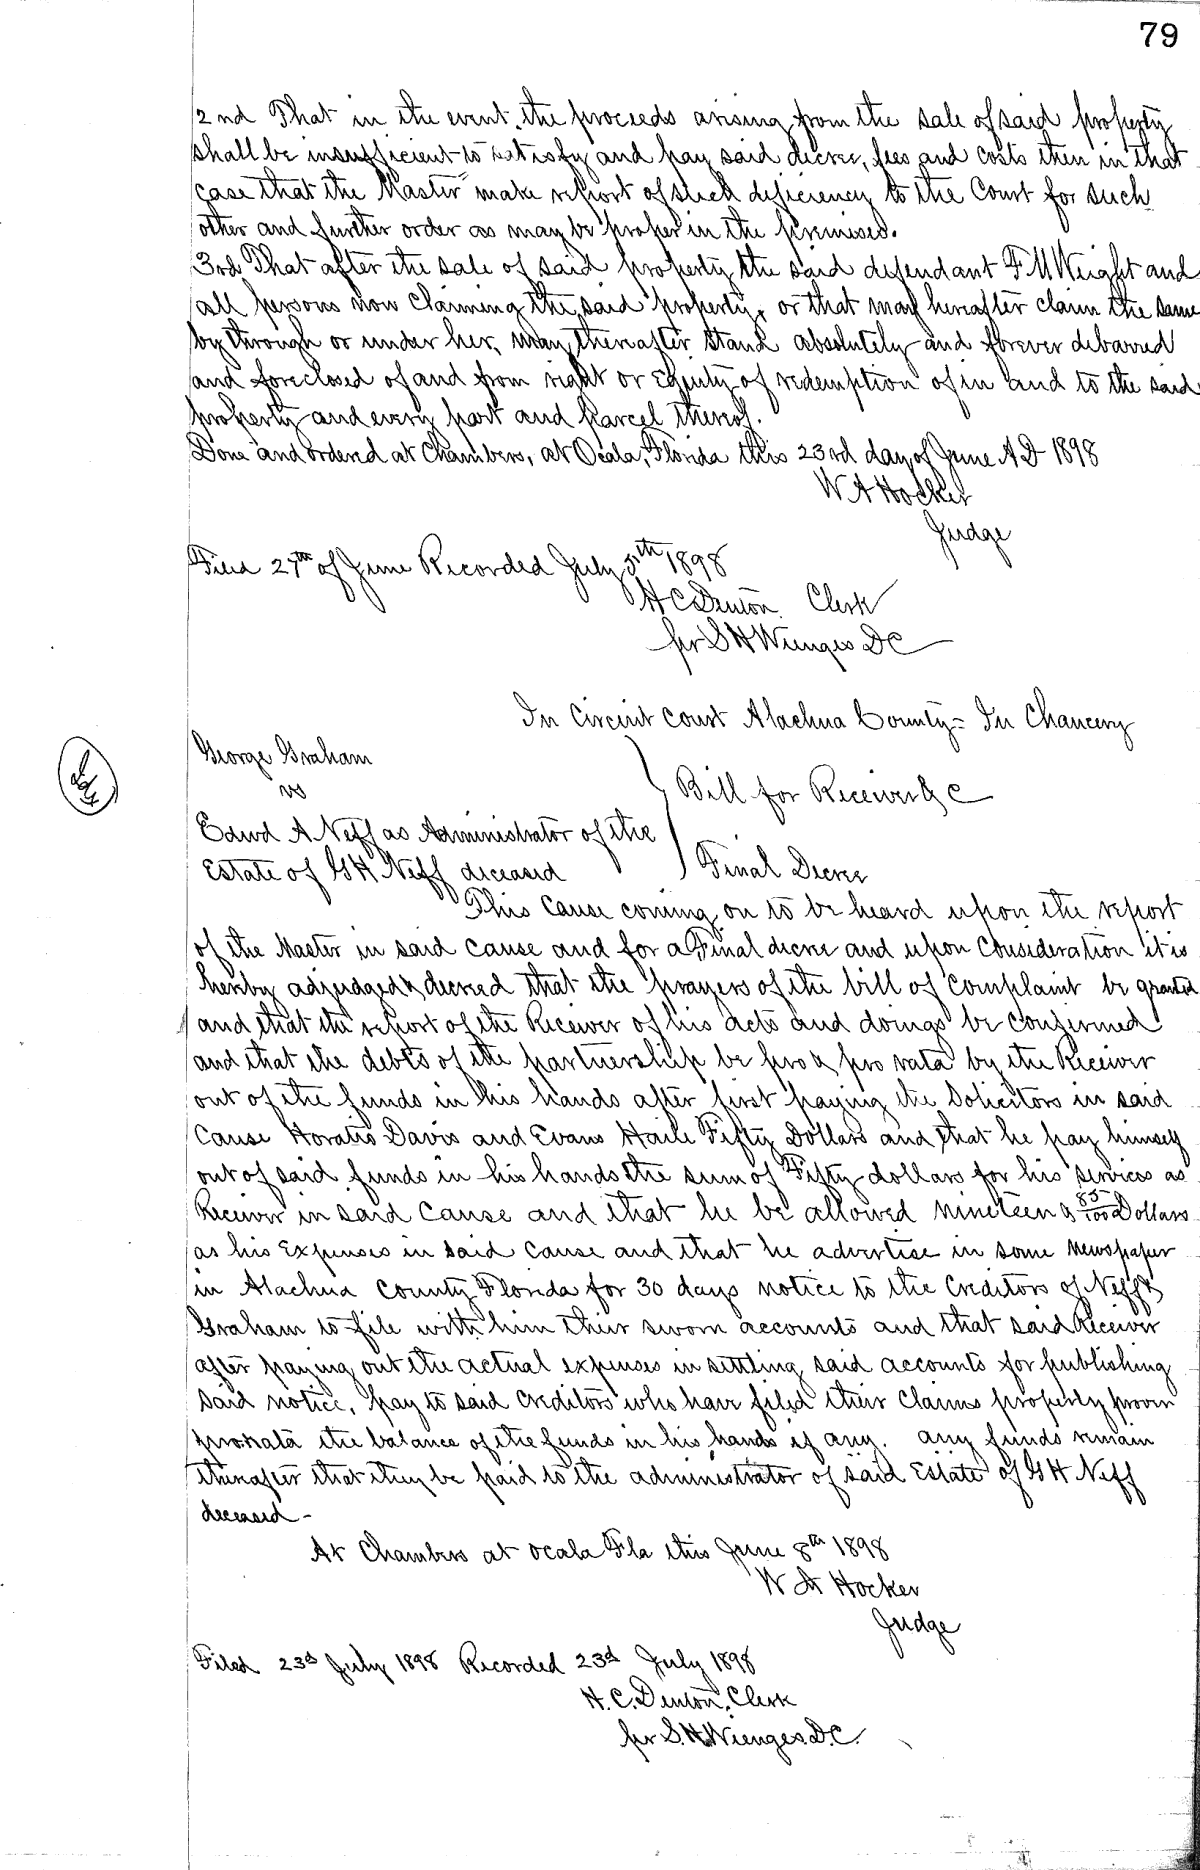 79
2nd That in the event the proceeds arising from the sale of said property
shall be insufficient to satisfy and pay said decree, fees and costs then in that
case that the Master make report of such deficiency to the Court for such
other and further order as may be proper in the premises.
3rd That after the sale of said property the said defendant F. M Weight and
all persons now claiming the said property, or that may hereafter claim the same
by through or under her, may thereafter stand absolutely and forever debarred
and foreclosed of and from right or Equity of redemption of in and to the said
property and every part and parcel thereof.
Done and ordered at Chambers, at Ocala, Florida this 23rd day of June A D 1898
W A Hocker
Judge
Filed 27th of June Recorded July 5th 1898
H C Denton Clerk
per S H Wienges D C
In Circuit court Alachua County = In Chancery
George Graham
vs
Edwd A Neff as Administrator of the
Estate of G H Neff deceased
Bill for Receiver & C
Final Decree
This Cause coming on to be heard upon the report
of the Master in said cause and for a Final decree and upon consideration it is
hereby adjudged & decreed that the prayers of the bill of complaint be granted
and that the report of the Receiver of his acts and doings be confirmed
and that the debts of the partnership be pro & pro rata by the Receiver
out of the funds in his hands after first paying the Solicitors in said
Cause Horatio Davis and Evans Haile Fifty Dollars and that he pay himself
out of said funds in his hands the sum of Fifty dollars for his services as
Receiver in said cause and that he be allowed nineteen & 85/100 Dollars
as his Expenses in said cause and that he advertise in some newspaper
in Alachua County Florida for 30 days notice to the Creditors of Neff &
Graham to file with him their sworn accounts and that said Receiver
after paying out the actual expenses in settling said accounts for publishing
said notice, pay to said creditors who have filed their claims properly proven
prorata the balance of the funds in his hands if any. any funds remain
thereafter that they be paid to the administrator of said Estate of G H Neff
deceased -
At Chambers at Ocala Fla this June 8th 1898
W A Hocker
Judge
Filed 23d July 1898 Recorded 23d July 1898
H. C. Denton, Clerk
per S. H. Wienges. D. C.